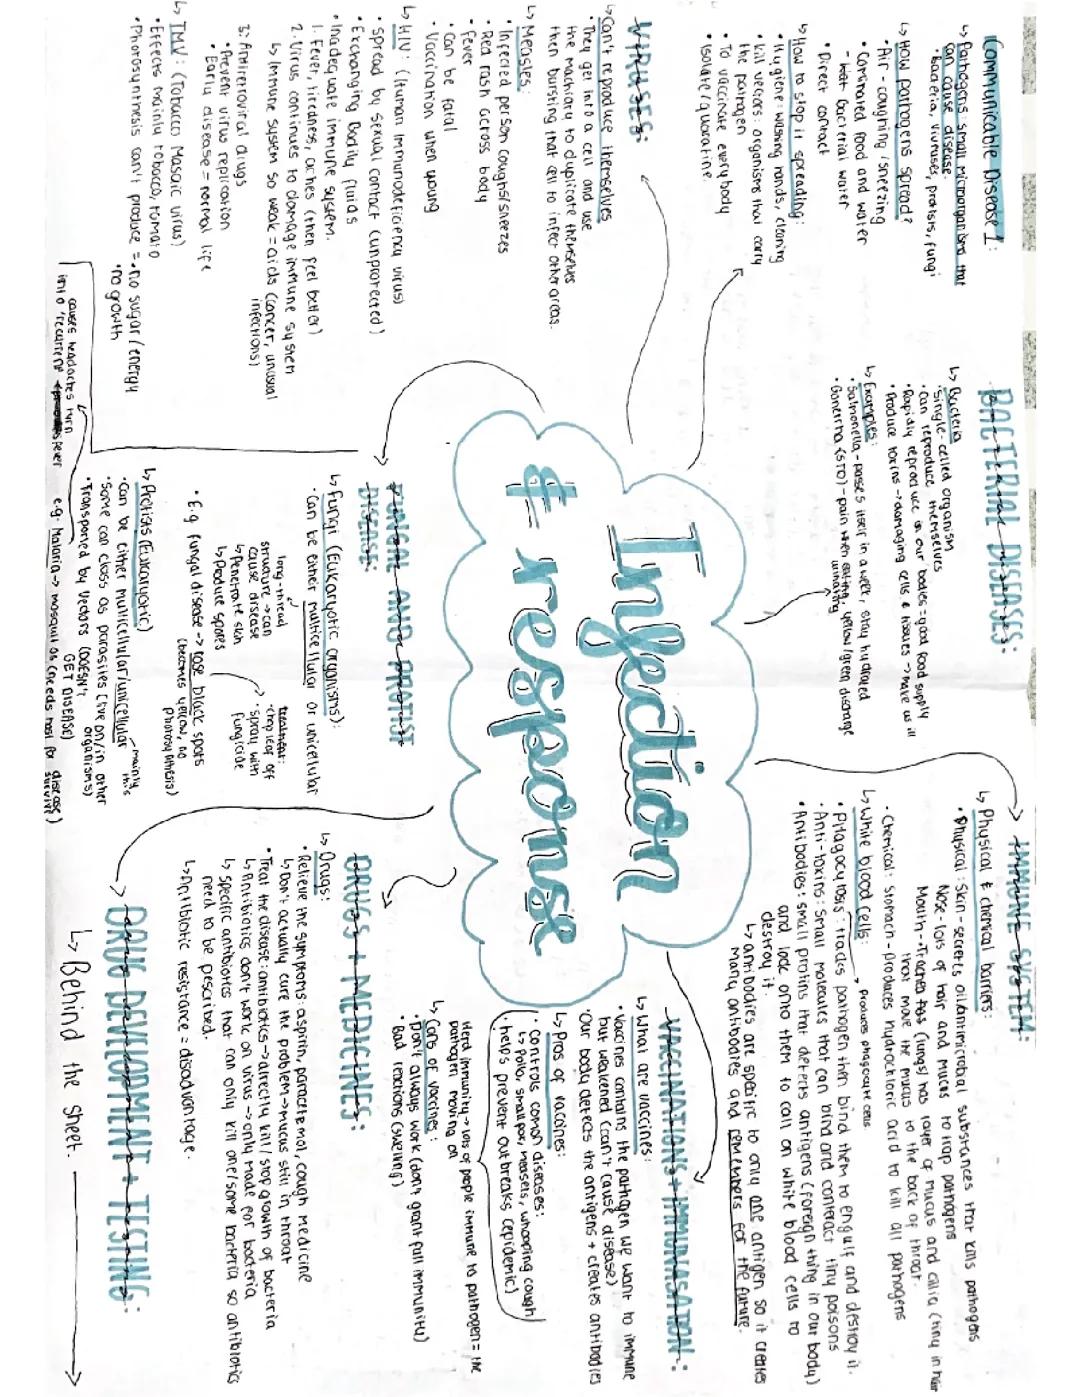 Communicable Disease 1:
↳ Pathogens: small microorganisms that
can cause disease.
• Bacteria, viruses, protists, fungi
↳ How pathogens spread?
• Air - coughing / sneezing
• Contamated food and water
- water bacterial water
• Direct contact
↳ How to stop it spreading:
• Hygiene: washing hands, cleaning
• Kill vectors: organisms that carry
the pathogen
• To vaccinate everybody
• Isolate/quarantine.
VIRUSES:
↳ Can't reproduce themselves
• They get into a cell and use
the machiary to duplicate themselves
then bursting that cell to infect other areas.
↳ Measles:
• Infected person coughs/sneezes
• Red rash across body
• Fever
• Can be fatal
• Vaccination when young
↳ HIV: (Human Immunodeficiency virus)
• Spread by sexual contact (unprotected)
• Exchanging bodily fluids
• Inadequate immune system.
1. Fever, tiredness, aches (then feel better)
2. Virus continues to damage immune system
↳ Immune system so weak = aids (cancer, unusual
infections)
3. Antiretroviral drugs
• Prevent virus replication
• Early disease = normal life
↳ TMV: (Tobacco Mosaic virus)
• Effects mainly tobacco, tomato
• Photosynthesis can't produce = • no sugar / energy
• no growth
BACTERIAL DISEASES:
↳ Bacteria
• Single-celled organism
• Can reproduce themselves
• Rapidly reproduce in our bodies = good food supply
• Produce toxins → damaging cells & tissues → make us ill
↳ Examples:
• Salmonella - passes itself in a week, stay hydrated
• Gonerrha (STD) - pain when urinating, yellow/green discharge
Infection
& response
FUNGAL AND PROTIST
DISEASE:
↳ Fungi (Eukaryotic organisms):
• Can be either multicellular or unicellular
long-thread
structure → can
cause disease
↳ Penetrate skin
↳ Produce spores
treatment:
• chop leaf off
• spray with
fungicide
• E.g fungal disease → rose black spots
(becomes yellow, no
photosynthesis)
↳ Protists (Eukaryotic)
• Can be either multicellular/unicellular - mainly this
• Some can class as parasites (live on/in other
organisms)
• Transpored by vectors (DOESN'T
GET DISEASE)
e.g. Malaria → mosquitos (needs host for disease/
survive)
causes headaches turn
into 'recurrent fever
IMMUNE SYSTEM:
↳ Physical & chemical barriers:
• Physical: Skin - secretes oil/antimicrobial substances that kills pathogens
Nose - lots of hair and mucus to trap pathogens
that move the mucus to the back of throat.
• Chemical: stomach - produces hydrochloric acid to kill all pathogens
↳ White blood cells: → Produces phagocyte cells
• Phagocytosis: tracks pathogen then bind them to engulf and destroy it.
• Anti-toxins: Small molecules that can bind and conteract tiny poisons
• Antibodies: small protins that detects antigens (foreign thing in our body)
and lock onto them to call on white blood cells to
destroy it.
↳ antibodies are specific to only one antigen so it creates
many antibodies and remembers for the future.
VACCINATION + IMMUNISATION:
↳ What are vaccines:
• Vaccines contains the pathogen we want to immune
but weakened (can't cause disease)
• Our body detects the antigens + creates antibodies
↳ Pros of vaccines:
• controls common diseases:
↳ Polio, smallpox, measels, whooping cough
• helps prevent outbreaks (epidemic)
Herd immunity → lots of people immune to pathogen = the
pathogen moving on
↳ Cons of vaccines:
• Don't always work (don't grant full immunity)
• Bad reactions (swelling)
DRUGS + MEDICINES:
↳ Drugs:
• Relieve the symptoms: aspirin, paracetemol, cough medicine
↳ Don't actually cure the problem → mucus still in throat
• Treat the disease: antibiotics → directly kill / stop growth of bacteria
↳ Antibiotics don't work on virus → only made for bacteria
↳ Specific antibiotics that can only kill one/some bacteria so antibiotics
need to be pescribed.
↳ Antibiotic resistance = disadvantage.
DRUG DEVELOPMENT + TESTING:
↳ Behind the sheet. →